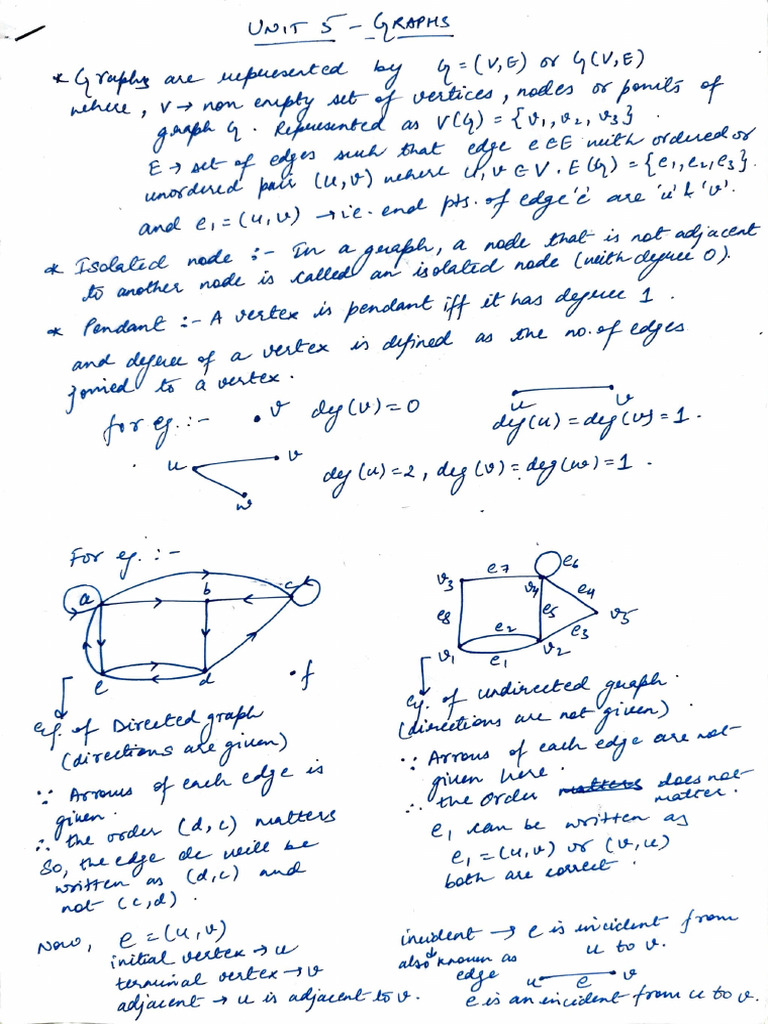 UNIT 5 - GRAPHS
* Graphs are represented by G = (V, E) or G(V, E)
where, V → non empty set of vertices, nodes or points of
graph G. Represented as V(G) = {v₁, v₂, v₃}.
E → set of edges such that edge e∈E with ordered or
unordered pair (u, v) where u, v ∈ V. E(G) = {e₁, e₂, e₃}.
and e₁ = (u, v) → i.e. end pts. of edge 'e' are 'u' & 'v'.
* Isolated node :- In a graph, a node that is not adjacent
to another node is called an isolated node (with degree 0).
* Pendant :- A vertex is pendant iff it has degree 1.
and degree of a vertex is defined as the no. of edges
joined to a vertex.
for eg. :- • v deg(v) = 0
u v
deg(u) = deg(v) = 1.
u v w
deg(u) = 2, deg(v) = deg(w) = 1.
For eg. :-
a b c
e d • f
eg. of Directed graph
(directions are given)
∵ Arrows of each edge is
given.
∴ the order (d, c) matters
So, the edge dc will be
written as (d, c) and
not (c, d).
Now, e = (u, v)
initial vertex → u
terminal vertex → v
adjacent → u is adjacent to v.
v₃ e₇ e₆
v₄ e₄
e₈ e₅ v₅
e₂ e₃
v₁ e₁ v₂
eg. of undirected graph.
(directions are not given)
∵ Arrows of each edge are not
given here.
∴ the order matters does not
matter.
e₁ can be written as
e₁ = (u, v) or (v, u)
both are correct.
incident → e is incident from
also known as u to v.
edge u e v
e is an incident from u to v.